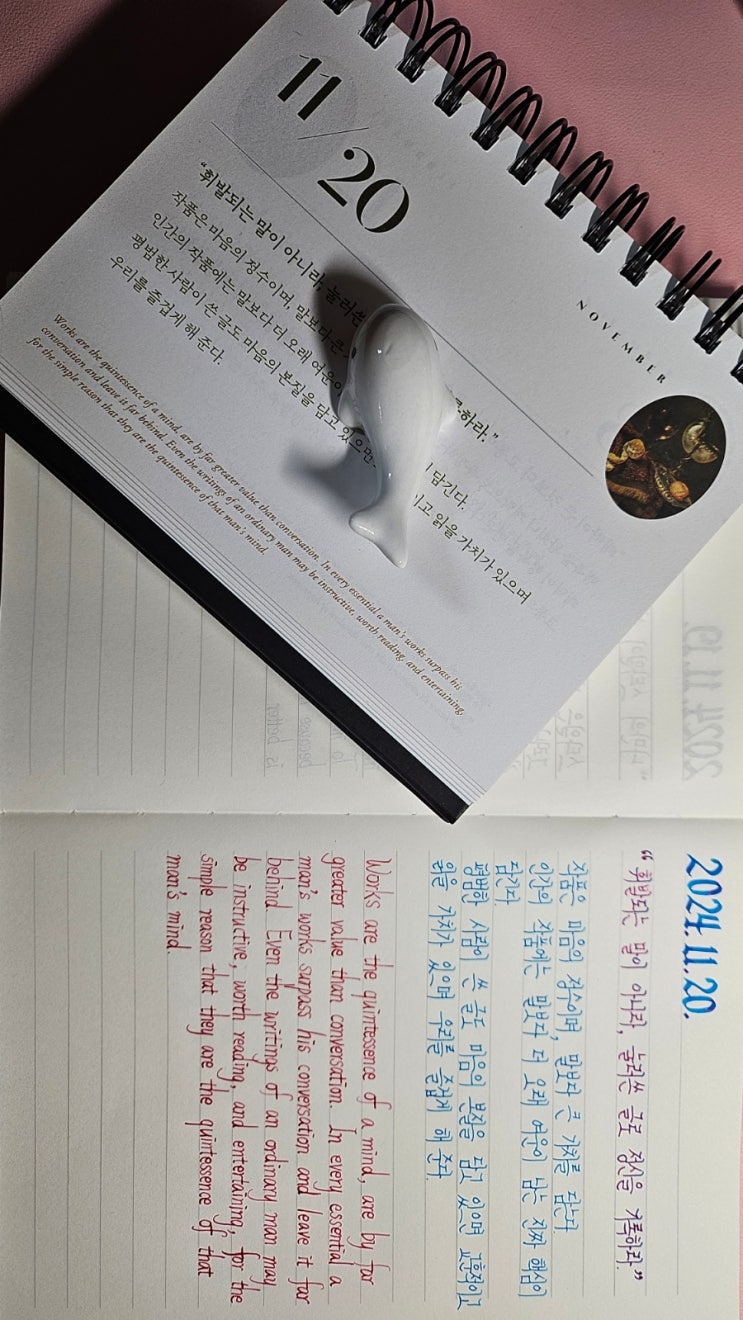 11/20
NOVEMBER
“휘발되는 말이 아니라, 눌러쓴
작품은 마음의 정수이며, 말보다 큰
인간의 작품에는 말보다 더 오래 담긴다.
평범한 사람이 쓴 글도 마음의 본질을 담고 읽을 가치가 있으며
우리를 즐겁게 해 준다.
Works are the quintessence of a mind, are by far greater value than conversation. In every essential a man's works surpass his
conversation and leave it far behind. Even the writings of an ordinary man may be instructive, worth reading, and entertaining,
for the simple reason that they are the quintessence of that man's mind.
2024. 11. 20.
“휘발되는 말이 아니라, 눌러쓴 글로 정신을 기록하라.”
작품은 마음의 정수이며, 말보다 큰 가치를 담는다
인간의 작품에는 말보다 더 오래 여운이 남는 진짜 핵심이
담긴다
평범한 사람이 쓴 글도 마음의 본질을 담고 있으면 교훈적이고
읽을 가치가 있으며 우리를 즐겁게 해 준다.
Works are the quintessence of a mind, are by far
greater value than conversation. In every essential a
man's works surpass his conversation and leave it far
behind. Even the writings of an ordinary man may
be instructive, worth reading, and entertaining, for the
simple reason that they are the quintessence of that
man's mind.